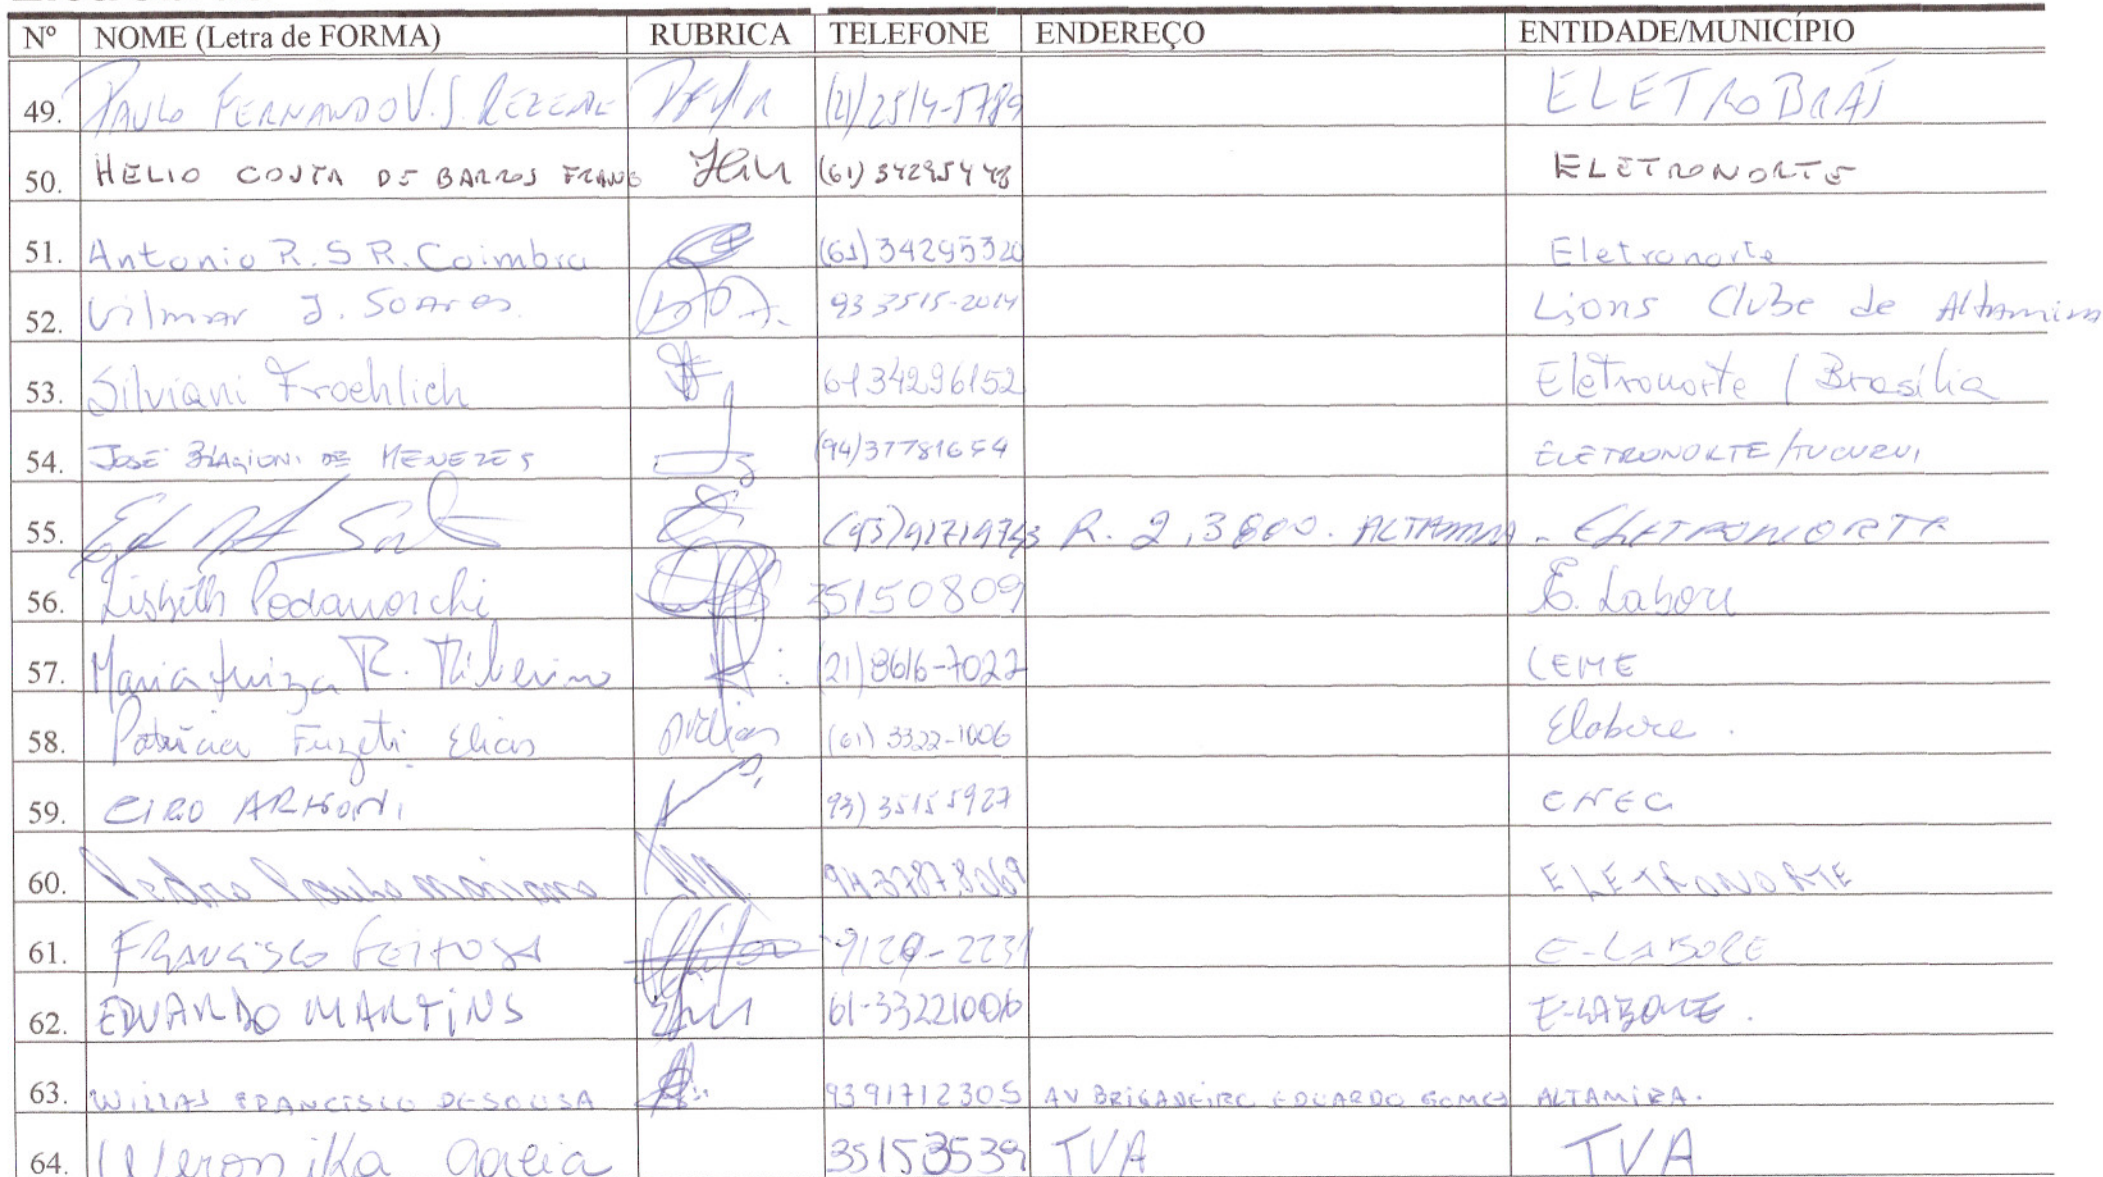 Nº NOME (Letra de FORMA) RUBRICA TELEFONE ENDEREÇO ENTIDADE/MUNICÍPIO
49. PAULO FERNANDO V.S. REZENDE (21) 2514-5789 ELETROBRÁS
50. HELIO COSTA DE BARROS FRANCO (61) 34295448 ELETRONORTE
51. Antonio R. S R. Coimbra (61) 34295320 Eletronorte
52. Vilmar J. Soares. 93 3515-2014 Lions Clube de Altamira
53. Silviani Froehlich 61 34296152 Eletronorte / Brasília
54. JOSÉ BIAGIONI DE MENEZES (94) 37781654 ELETRONORTE/TUCURUI
55. R. 2, 3600. ALTAMIRA - ELETRONORTE
56. Lisbeth 35150809 E. Labore
57. Maria Luiza R. (21) 8616-7027 LEME
58. Patrícia Fuzeti Elias (61) 3322-1006 Elabore.
59. CIRO 93) 3515 5927 CNEC
60. Pedro Paulo Mariano ELETRONORTE
61. FRANCISCO FEITOSA 9129-2231 E-LABORE
62. EDUARDO MARTINS 61-33221006 E-LABORE.
63. WILLAS FRANCISCO DE SOUSA 93 91712305 AV BRIGADEIRO EDUARDO GOMES ALTAMIRA.
64. 35153539 TVA TVA